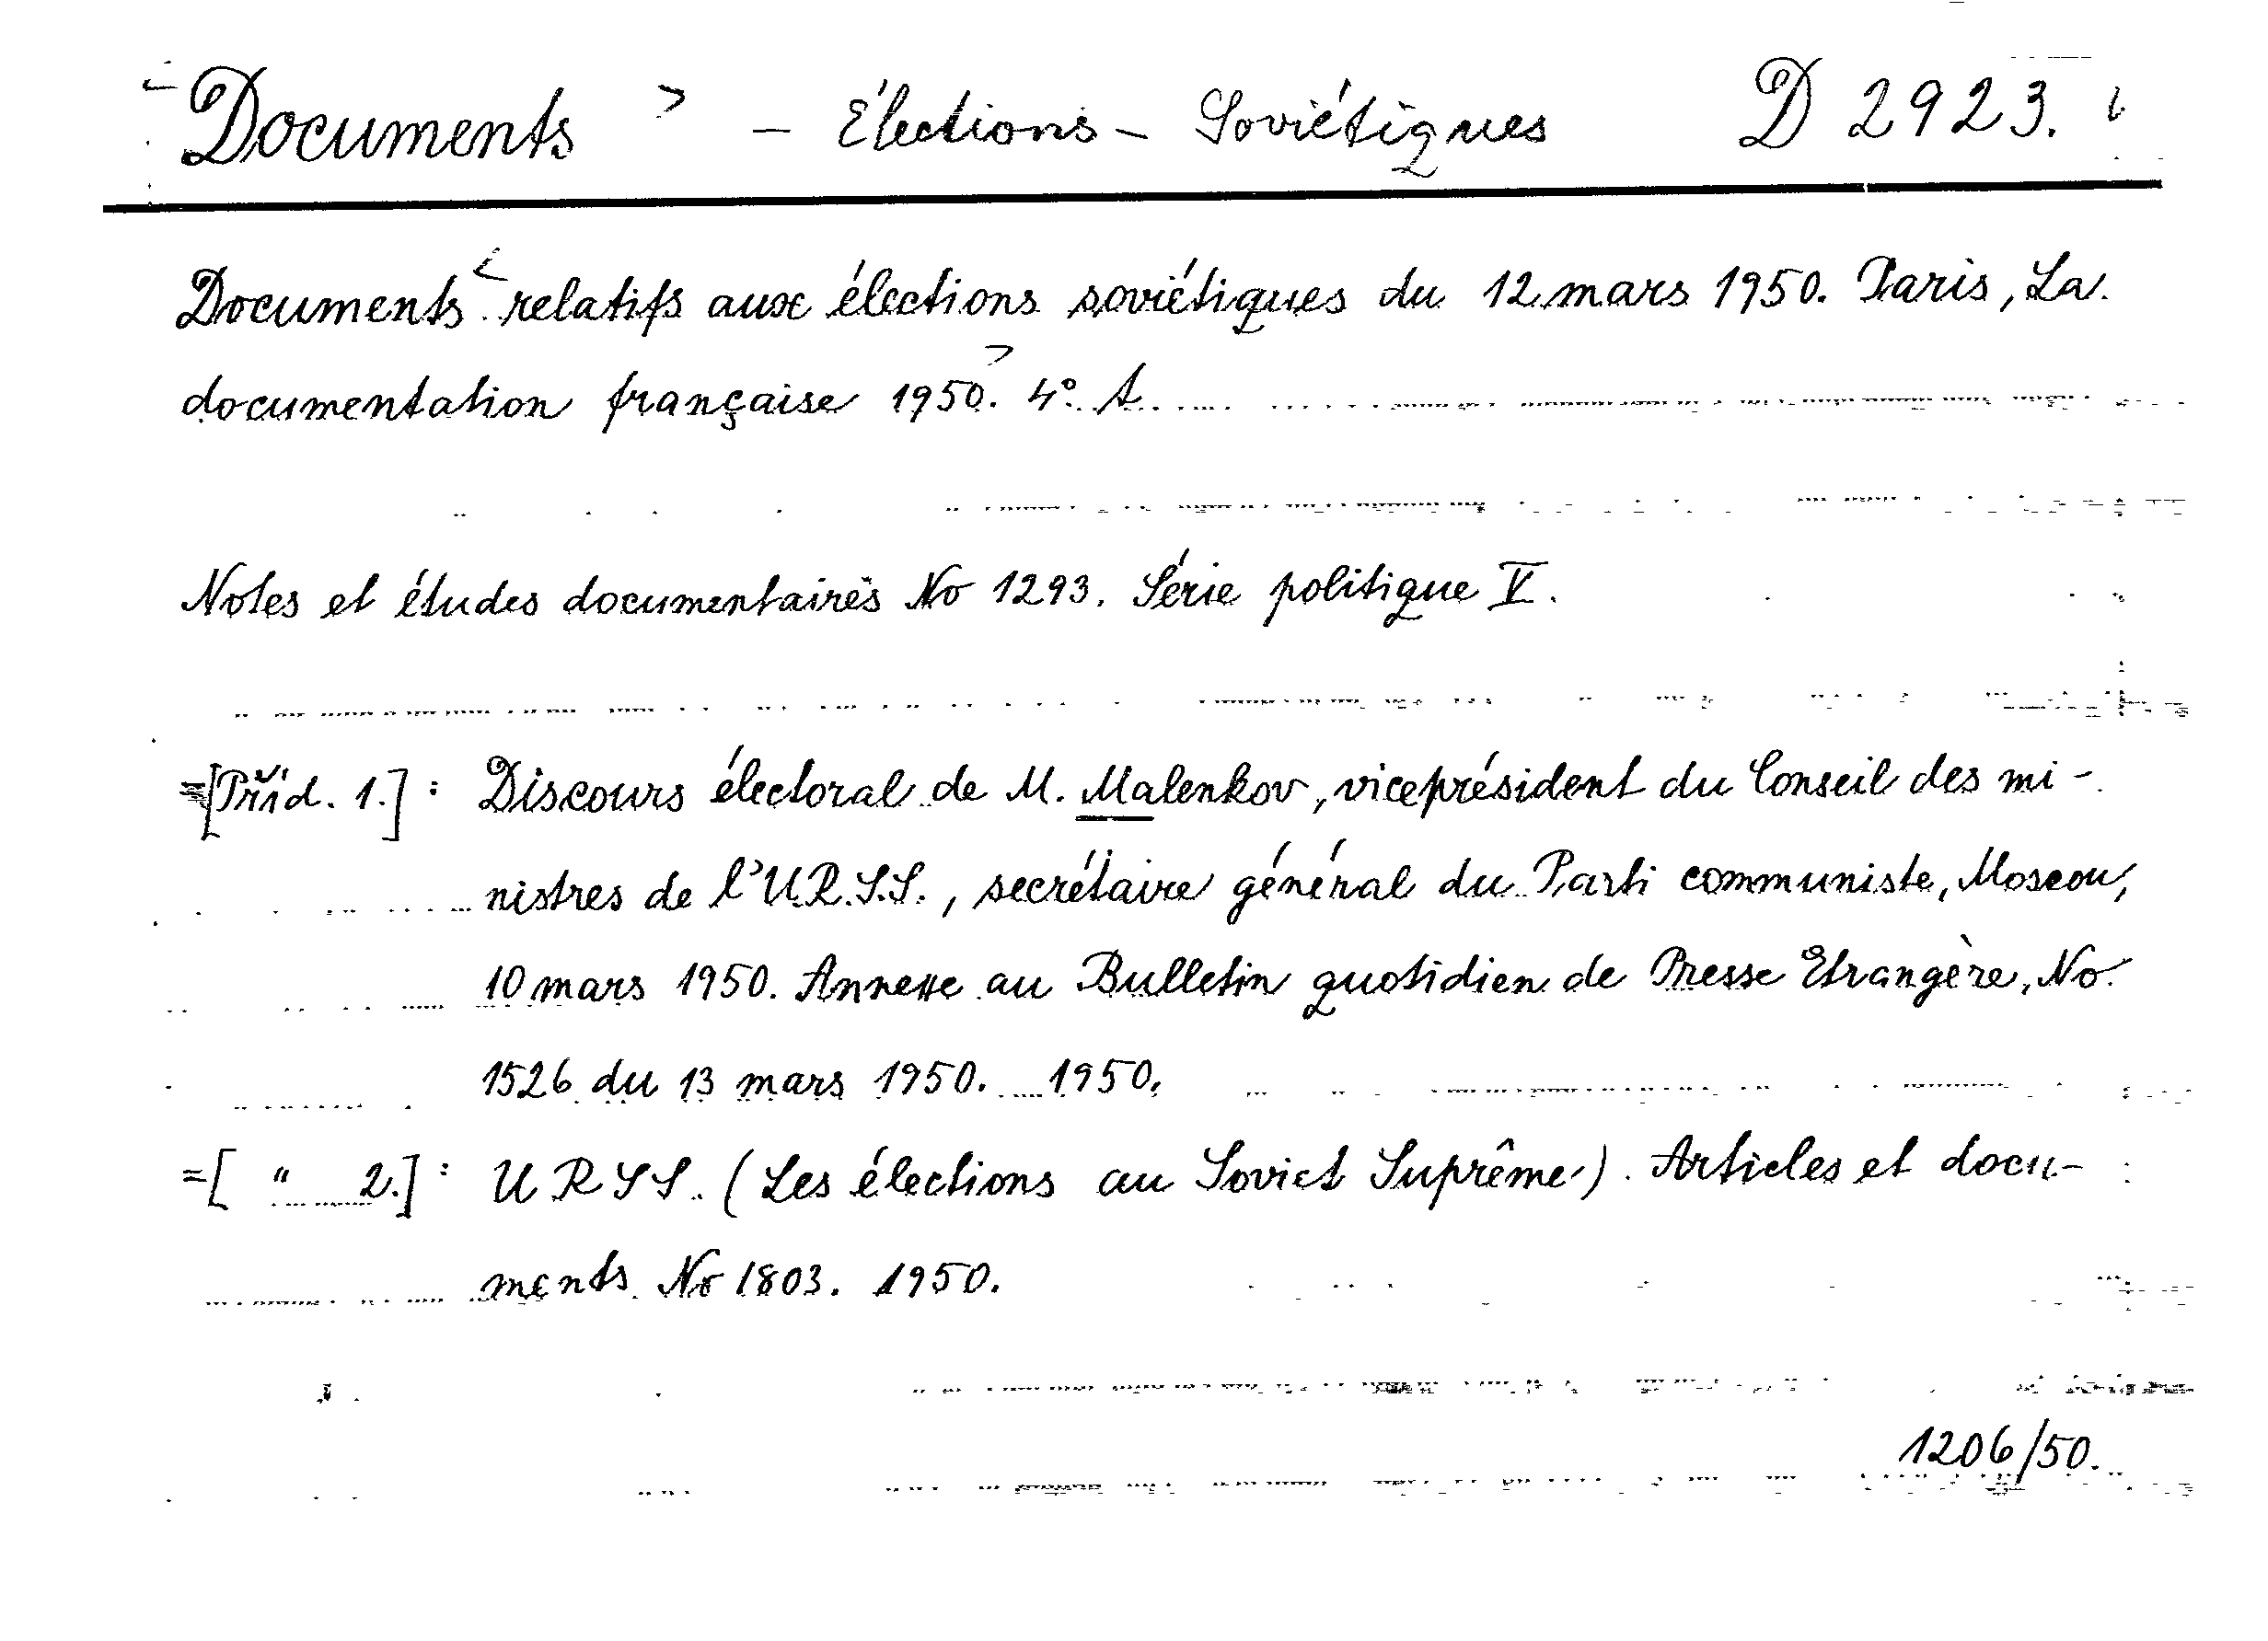 Documents – Élections – Soviétiques D 2923.
Documents relatifs aux élections soviétiques du 12 mars 1950. Paris, La
documentation française 1950. 4°.
Notes et études documentaires No 1293. Série politique V.
=[Příd. 1.]: Discours électoral de M. Malenkov, viceprésident du Conseil des mi-
nistres de l'U.R.S.S., secrétaire général du Parti communiste, Moscou,
10 mars 1950. Annexe au Bulletin quotidien de Presse Etrangère, No.
1526 du 13 mars 1950. 1950.
=[ " 2.]: U R S S. (Les élections au Soviet Suprême). Articles et docu-
ments No 1803. 1950.
1206/50.